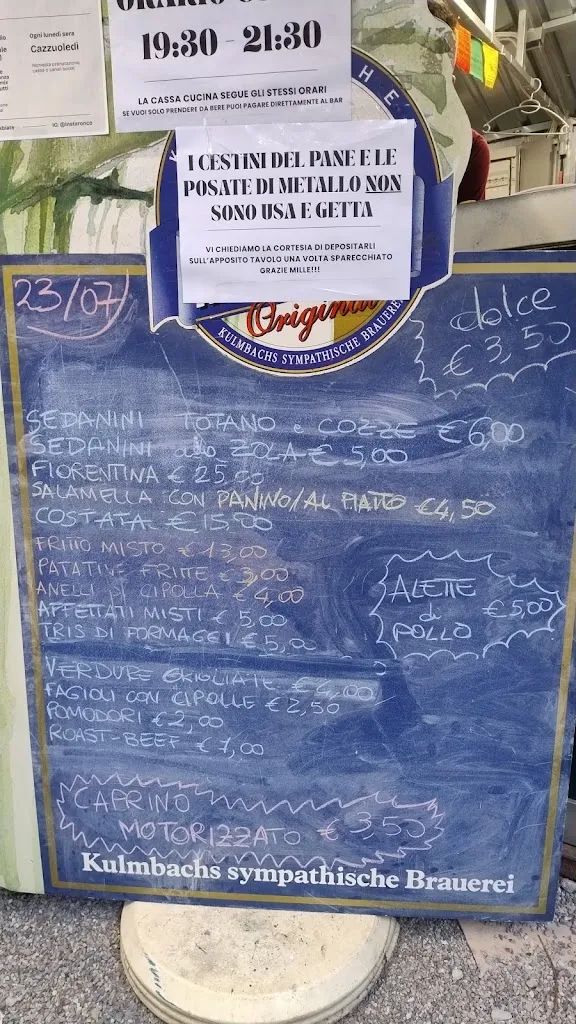 Ogni lunedì sera
Cazzuoledì
IG: @instaronco
19:30 - 21:30
LA CASSA CUCINA SEGUE GLI STESSI ORARI
SE VUOI SOLO PRENDERE DA BERE PUOI PAGARE DIRETTAMENTE AL BAR
I CESTINI DEL PANE E LE
POSATE DI METALLO NON
SONO USA E GETTA
VI CHIEDIAMO LA CORTESIA DI DEPOSITARLI
SULL'APPOSITO TAVOLO UNA VOLTA SPARECCHIATO
GRAZIE MILLE!!!
Original
KULMBACHS SYMPATHISCHE BRAUEREI
23/07
dolce
€ 3,50
SEDANINI TOTANO e COZZE €6,00
SEDANINI allo ZOLA € 5,00
FIORENTINA € 25,00
SALAMELLA CON PANINO/AL PIATTO €4,50
COSTATA €15,00
FRITTO MISTO € 13,00
PATATINE FRITTE € 3,00
ANELLI DI CIPOLLA € 4,00
AFFETTATI MISTI € 5,00
TRIS DI FORMAGGI € 5,00
ALETTE
di
POLLO
€5,00
VERDURE GRIGLIATE € 4,00
FAGIOLI CON CIPOLLE € 2,50
POMODORI € 2,00
ROAST-BEEF € 7,00
CAPRINO
MOTORIZZATO € 3,50
Kulmbachs sympathische Brauerei